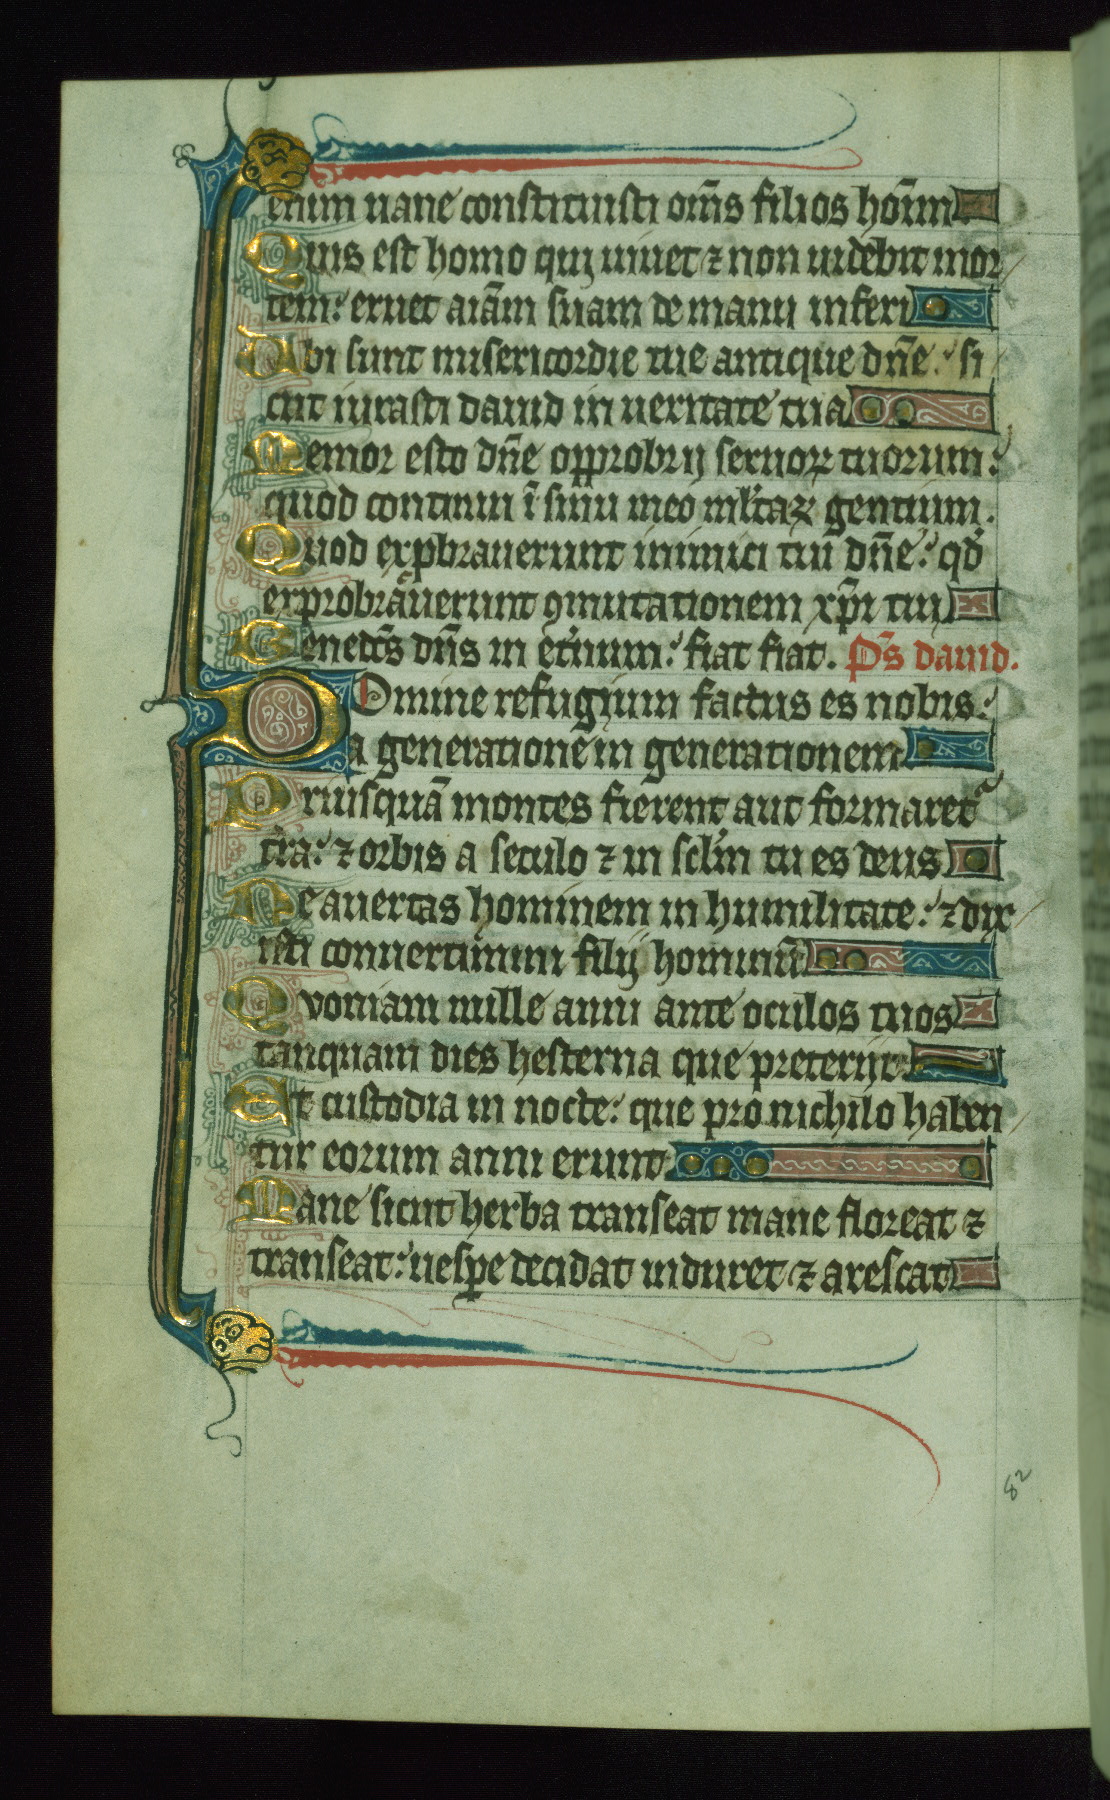 enim uane constituisti om̄s filios hoīm
Quis est homo qui uiuet ⁊ non uidebit mor
tem: eruet aīam suam de manu inferi
Ubi sunt misericordie tue antique dn̄e: si
cut iurasti dauid in ueritate tua
Memor esto dn̄e opprobrij seruoꝝ tuorum:
quod continui ī sinu meo mltaꝝ gentium.
Quod exp̱brauerunt inimici tui dn̄e: qd̓
exprobrauerunt ꝯmutationem xp̄i tui
Benedc̄s dn̄s in et̓num: fiat fiat. Ps̄ dauid.
Domine refugium factus es nobis:
a generatione in generationem
Priusquā montes fierent aut formaret᷑
t̓ra: ⁊ orbis a seculo ⁊ in sclm̄ tu es deus
Ne auertas hominem in humilitate: ⁊ dix
isti conuertimini filij hominū
Quoniam mille anni ante oculos tuos
tanquam dies hesterna que preterijt
Et custodia in nocte: que pro nichilo haben
tur eorum anni erunt
Mane sicut herba transeat mane floreat ⁊
transeat: uesp̱e decidat induret ⁊ arescat
82